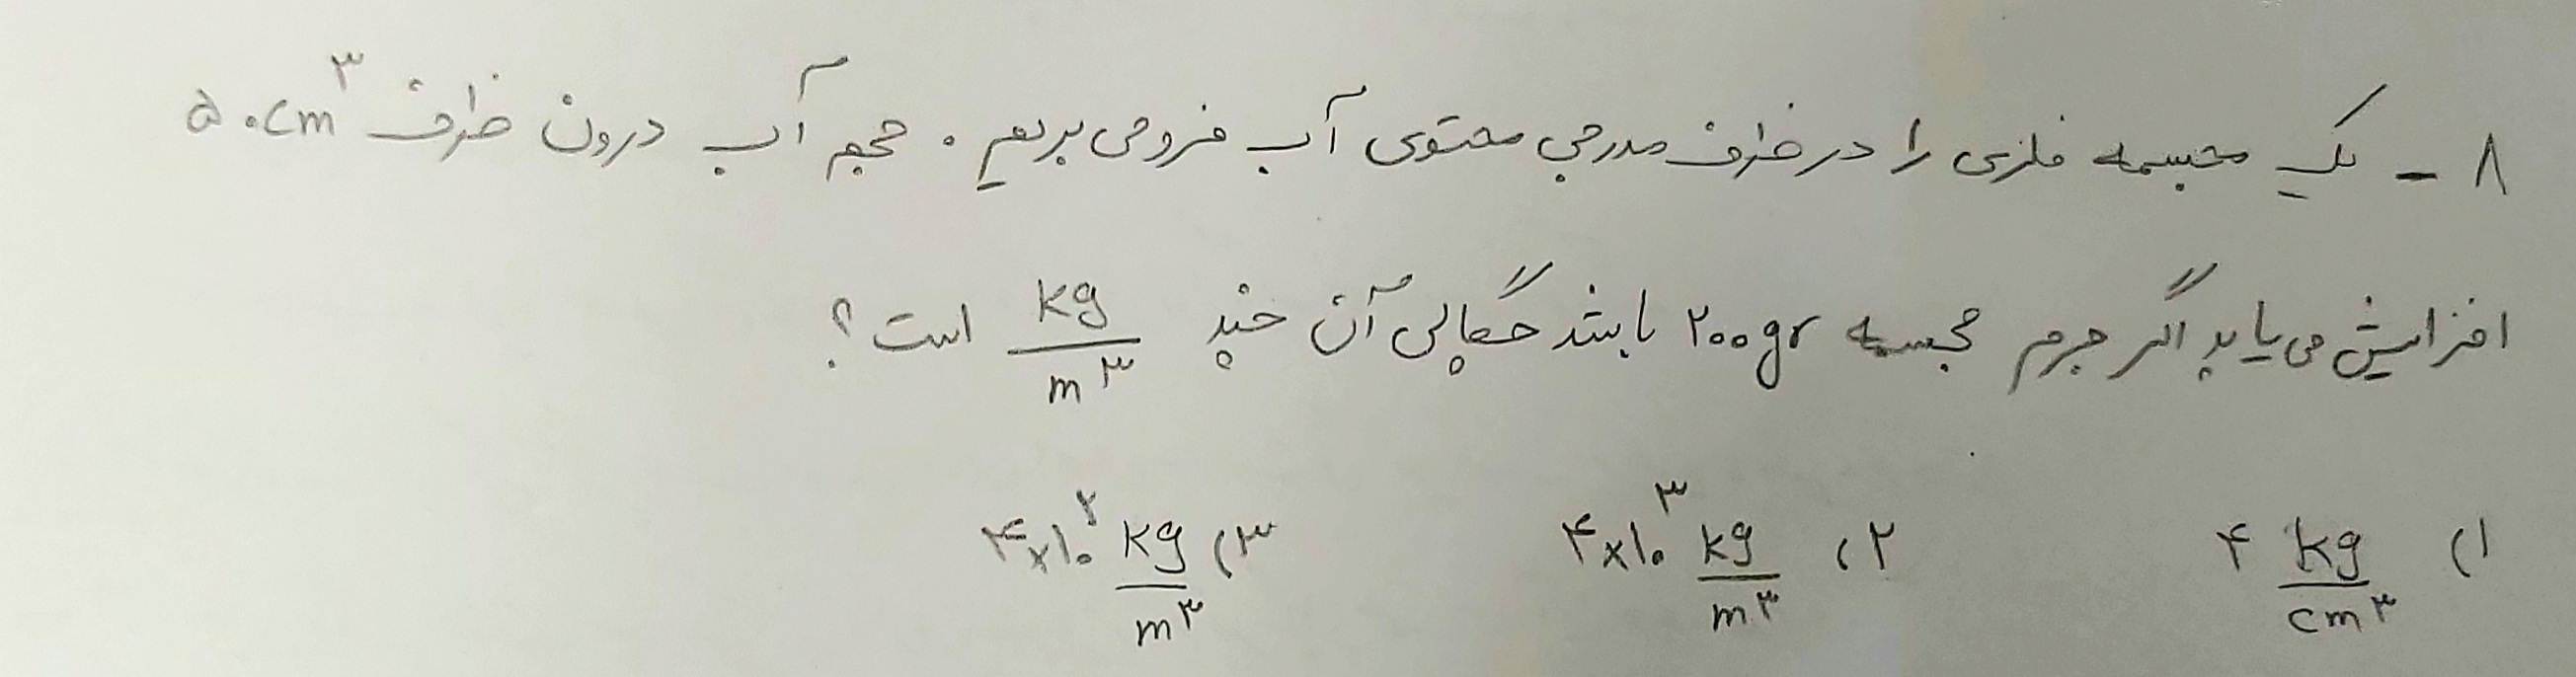 ۸ - یک مجسمه فلزی را در ظرف مدرجی محتوی آب فرو می بریم. حجم آب درون ظرف ۵۰cm³
افزایش می یابد اگر جرم مجسمه ۲۰۰gr باشد چگالی آن چند kg/m³ است؟
۱) ۴ kg/cm³ ۲) ۴×۱۰³ kg/m³ ۳) ۴×۱۰² kg/m³